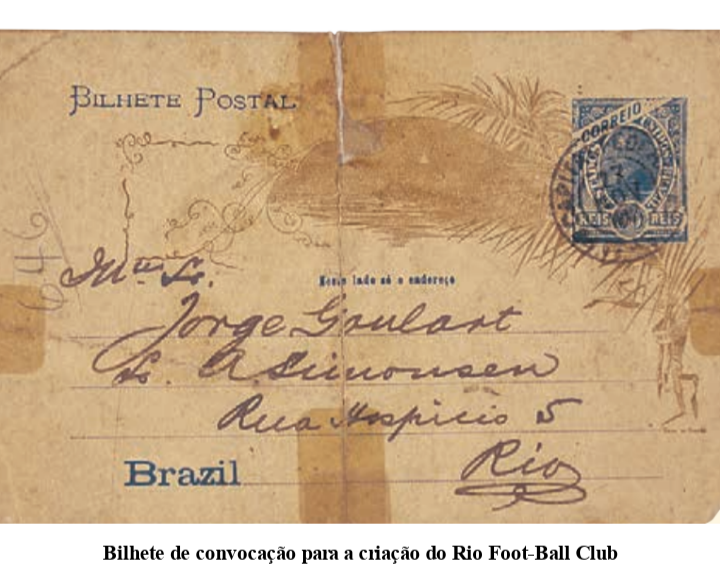 BILHETE POSTAL
CORREIO
REIS REIS
646
Neste lado só o endereço
Jorge Goulart
A Simonsen
Rua Hospicio 5
Rio
Brazil
Bilhete de convocação para a criação do Rio Foot-Ball Club